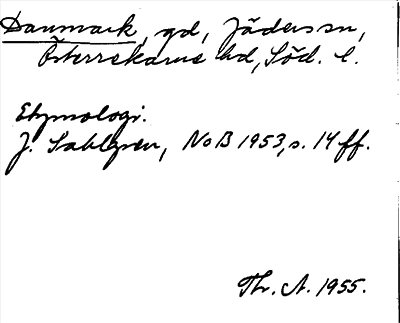 Danmark, gd, Jäders sn,
Österrekarne hd, Söd. l.
Etymologi.
J. Sahlgren, NoB 1953, s. 14 ff.
Th. A. 1955.